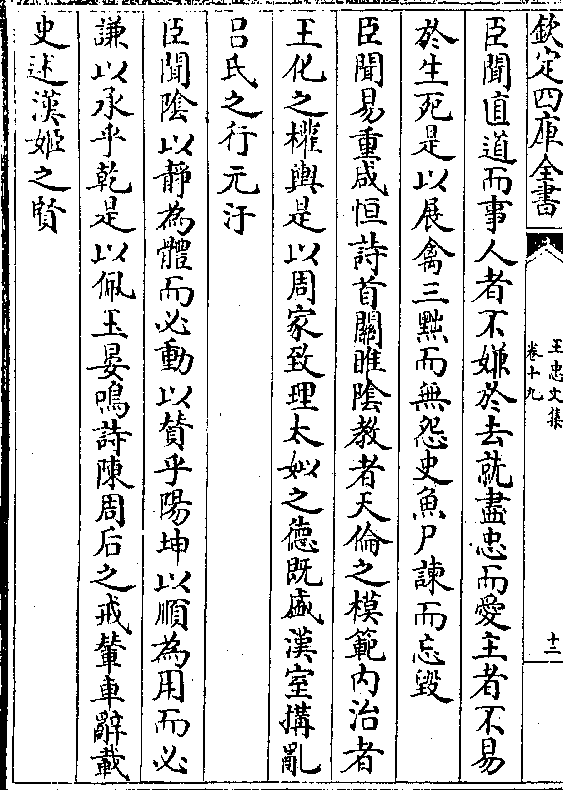 欽定四庫全書
王忠文集
卷十九
十三
臣聞直道而事人者不嫌於去就盡忠而愛主者不易
於生死是以展禽三黜而無怨史魚尸諫而忘毀
臣聞易重咸恒詩首關雎陰教者天倫之模範内治者
王化之權輿是以周家致理太姒之德既盛漢室搆亂
吕氏之行元汙
臣聞陰以靜為體而必動以賛乎陽坤以順為用而必
謙以承乎乾是以佩玉晏鳴詩陳周后之戒輦車辭載
史述漢姬之賢